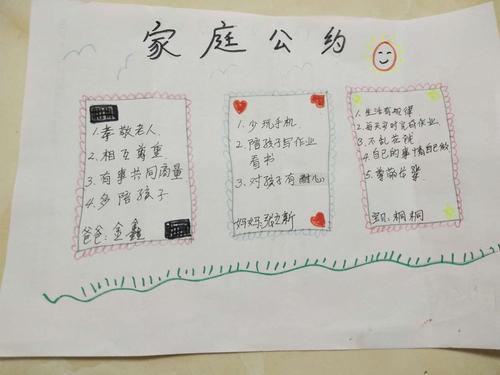 家庭公约
1 孝敬老人
2. 相互尊重
3. 有事共同商量
4 多陪孩子
爸爸: 金鑫
1. 少玩手机
2. 陪孩子写作业
看书
3. 对孩子有(耐心)
妈妈: 张立新
1. 生活有规律
2. 每天按时完成作业
3. 不乱花钱
4 自己的事情自己做
5 尊敬长辈
宝贝: 桐桐